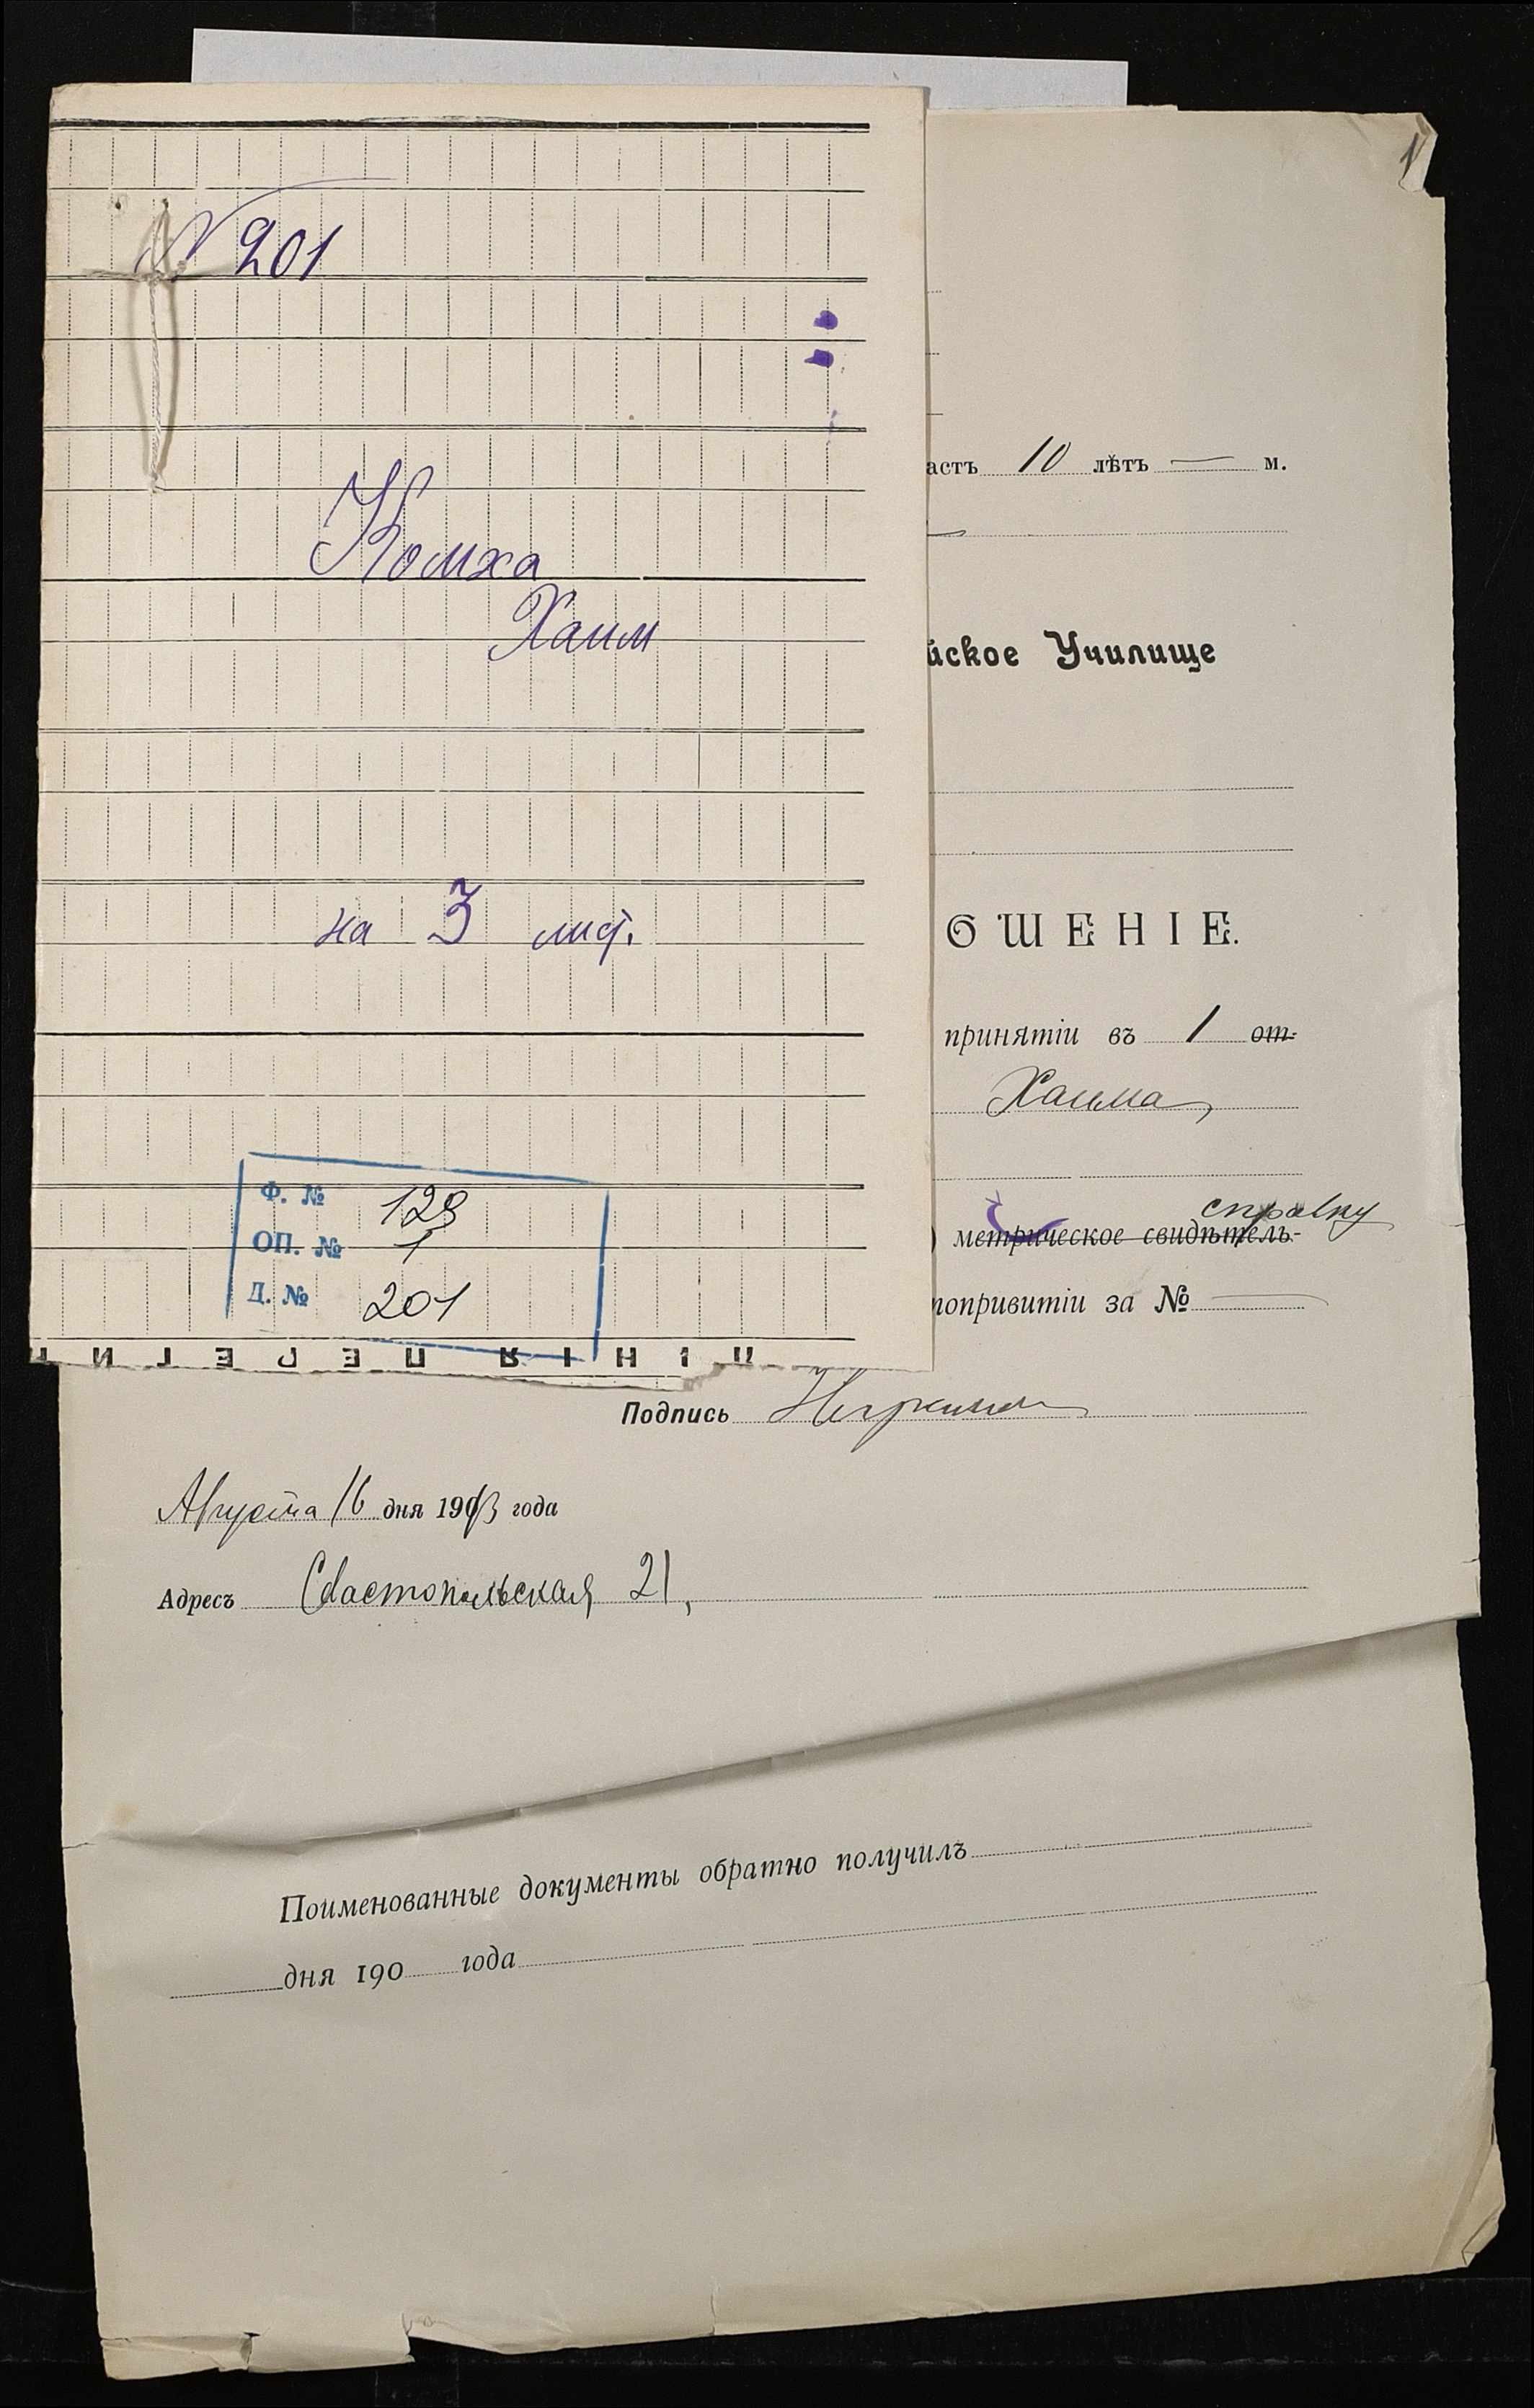 № 201
Комха
Хаим
на 3 лист.
Ф. № 129
ОП. № 1
Д. № 201
1
астъ 10 лѣтъ — м.
йское Училище
ОШЕНІЕ.
принятіи въ 1 от-
Хаима
справку
метрическое свидѣтель-
попривитіи за № —
Подпись
Августа 16 дня 1903 года
Адресъ Севастопольская 21,
Поименованные документы обратно получилъ
дня 190 года